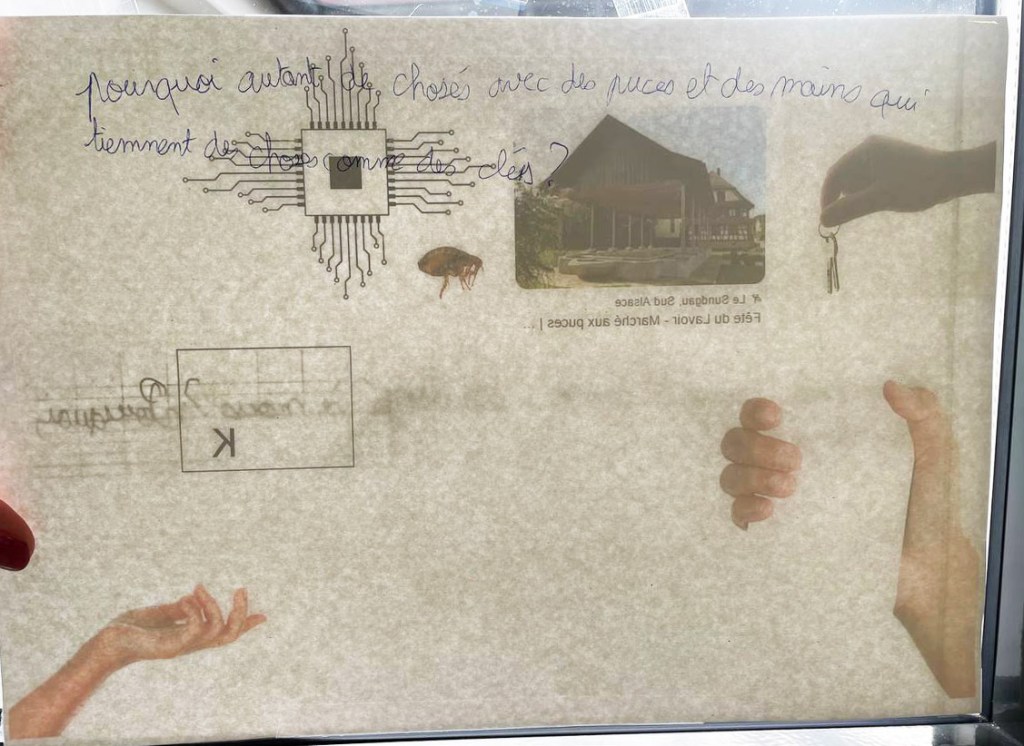 pourquoi autant de chosés avec des puces et des mains qui
tiemnent de choses comme des clés ?
Le Sundgau, Sud Alsace
Fête du Lavoir - Marché aux puces | ...
Pourquoi
K